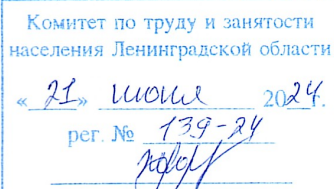 Комитет по труду и занятости
населения Ленинградской области
«21» июня 2024 г.
рег. № 139-24